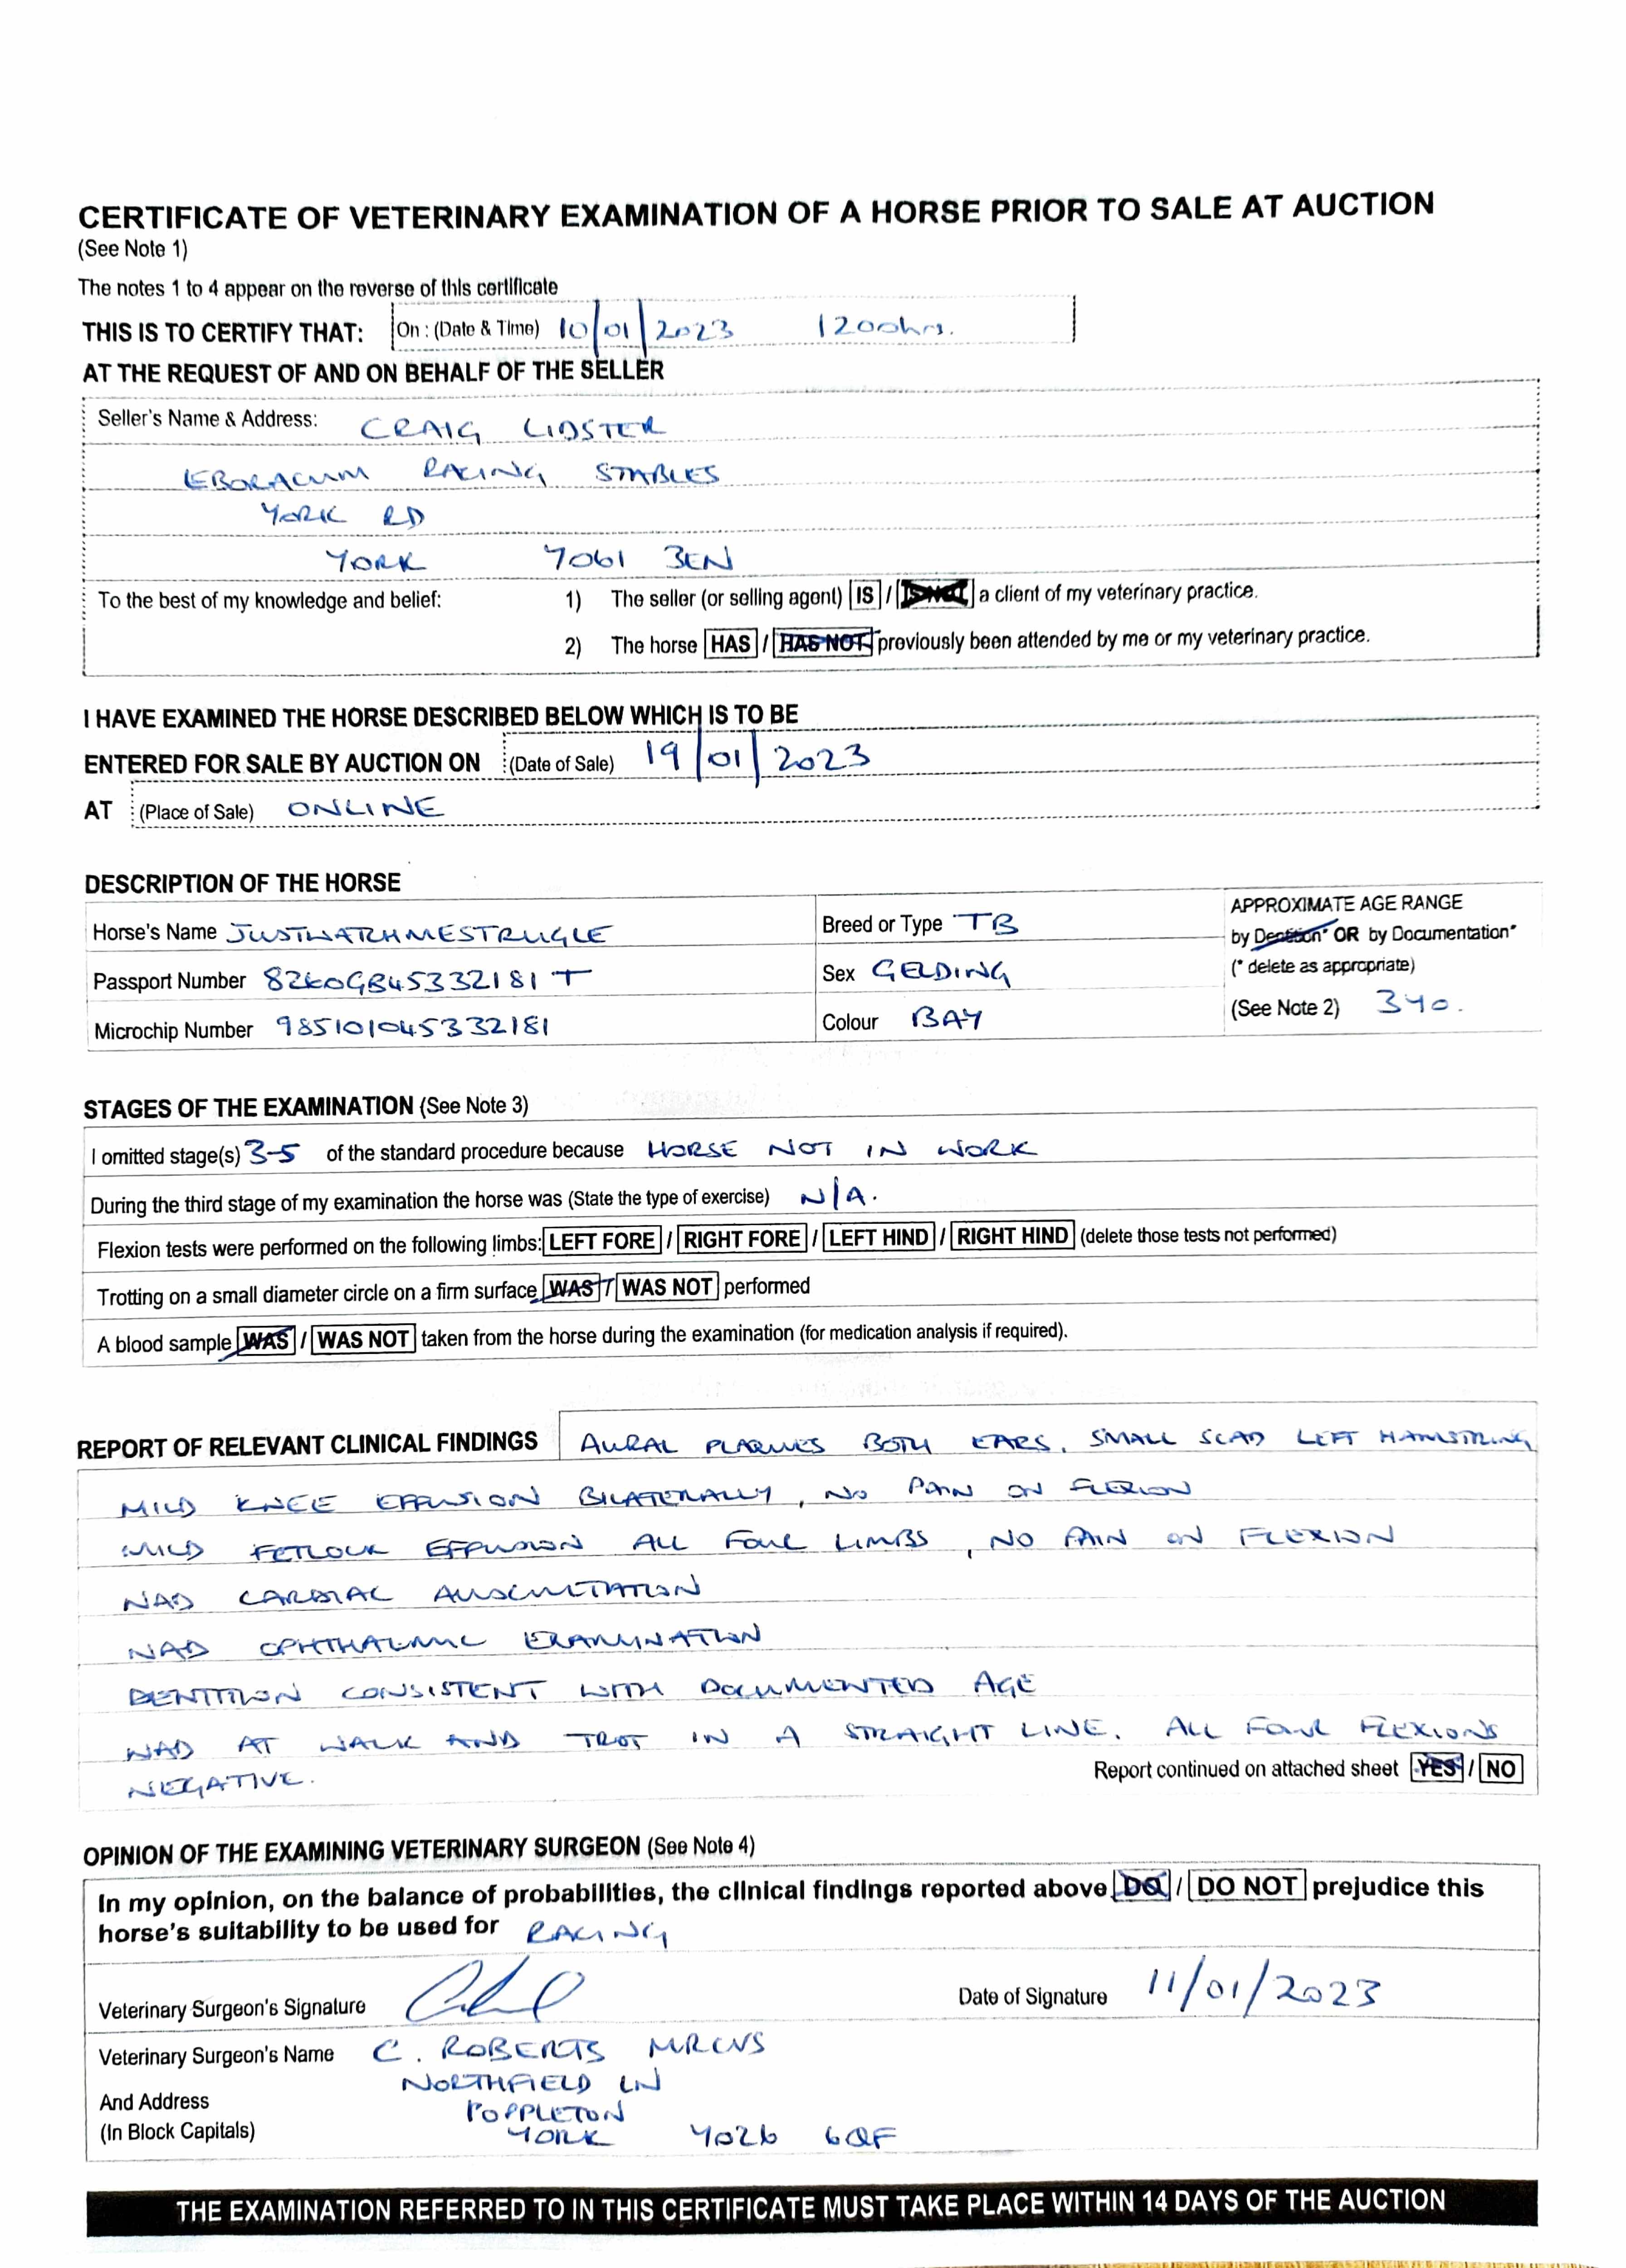 CERTIFICATE OF VETERINARY EXAMINATION OF A HORSE PRIOR TO SALE AT AUCTION
(See Note 1)
The notes 1 to 4 appear on the reverse of this certificate
THIS IS TO CERTIFY THAT: On : (Date & Time) 10/01/2023 1200hrs.
AT THE REQUEST OF AND ON BEHALF OF THE SELLER
Seller's Name & Address: CRAIG LIDSTER
EBORACUM RACING STABLES
YORK RD
YORK YO61 3EN
To the best of my knowledge and belief: 1) The seller (or selling agent) IS / IS NOT a client of my veterinary practice.
2) The horse HAS / HAS NOT previously been attended by me or my veterinary practice.
I HAVE EXAMINED THE HORSE DESCRIBED BELOW WHICH IS TO BE
ENTERED FOR SALE BY AUCTION ON (Date of Sale) 19/01/2023
AT (Place of Sale) ONLINE
DESCRIPTION OF THE HORSE
Horse's Name JUSTWATCHMESTRUGLE Breed or Type TB APPROXIMATE AGE RANGE
by Dentition* OR by Documentation*
Passport Number 826OGB45332181T Sex GELDING (* delete as appropriate)
Microchip Number 985101045332181 Colour BAY (See Note 2) 3yo.
STAGES OF THE EXAMINATION (See Note 3)
I omitted stage(s) 3-5 of the standard procedure because HORSE NOT IN WORK
During the third stage of my examination the horse was (State the type of exercise) N/A.
Flexion tests were performed on the following limbs: LEFT FORE / RIGHT FORE / LEFT HIND / RIGHT HIND (delete those tests not performed)
Trotting on a small diameter circle on a firm surface WAS / WAS NOT performed
A blood sample WAS / WAS NOT taken from the horse during the examination (for medication analysis if required).
REPORT OF RELEVANT CLINICAL FINDINGS AURAL PLAQUES BOTH EARS, SMALL SCAB LEFT HAMSTRING
MILD KNEE EFFUSION BILATERALLY, NO PAIN ON FLEXION
MILD FETLOCK EFFUSION ALL FOUR LIMBS, NO PAIN ON FLEXION
NAD CARDIAC AUSCULTATION
NAD OPHTHALMIC EXAMINATION
DENTITION CONSISTENT WITH DOCUMENTED AGE
NAD AT WALK AND TROT IN A STRAIGHT LINE. ALL FOUR FLEXIONS
NEGATIVE. Report continued on attached sheet YES / NO
OPINION OF THE EXAMINING VETERINARY SURGEON (See Note 4)
In my opinion, on the balance of probabilities, the clinical findings reported above DO / DO NOT prejudice this
horse's suitability to be used for RACING
Veterinary Surgeon's Signature Date of Signature 11/01/2023
Veterinary Surgeon's Name C. ROBERTS MRCVS
NORTHFIELD LN
And Address POPPLETON
(In Block Capitals) YORK YO26 6QF
THE EXAMINATION REFERRED TO IN THIS CERTIFICATE MUST TAKE PLACE WITHIN 14 DAYS OF THE AUCTION